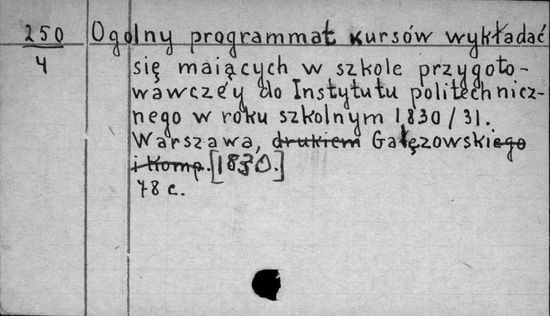 250 Ogolny programmat kursów wykładać
4 się maiących w szkole przygoto-
wawcze'y do Instytutu politechnicz-
nego w roku szkolnym 1830/31.
Warszawa, drukiem Gałęzowskiego
i Komp. [1830.]
78 c.